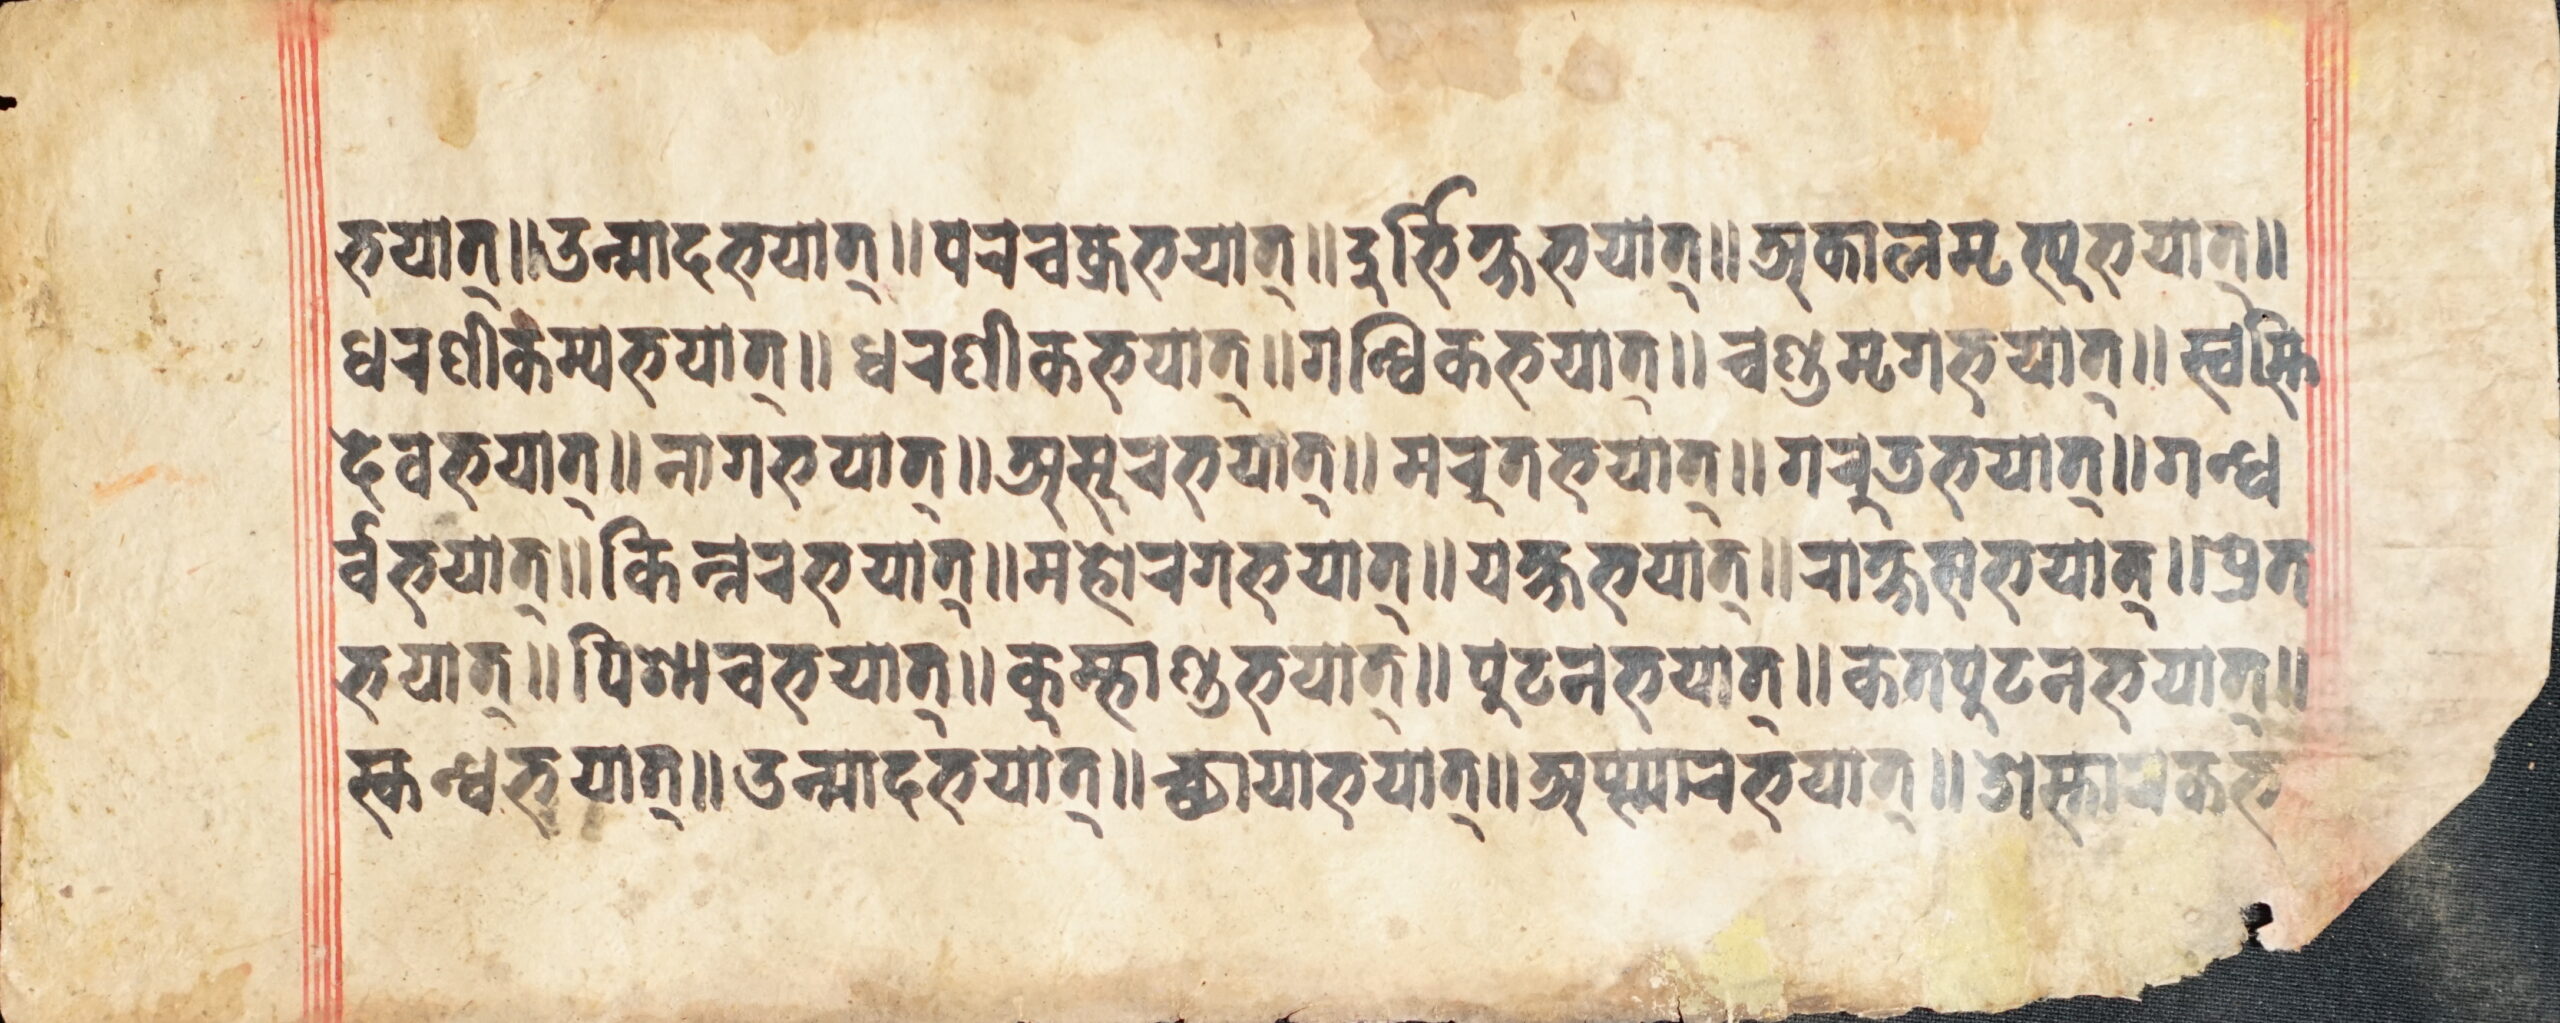 भयात्॥उन्मादभयात्॥परचक्रभयात्॥दुर्भिक्षभयात्॥अकालमृत्युभयात्॥
धरणीकंम्पभयात्॥ धरणीकभयात्॥गन्धिकभयात्॥ चण्डमृगभयात्॥
देवभयात्॥ नागभयात्॥असुरभयात्॥ मरुतभयात्॥ गरुडभयात्॥गन्ध
र्वभयात्॥किन्नरभयात्॥महोरगभयात्॥यक्षभयात्॥राक्षसभयात्॥प्रेत
भयात्॥पिशाचभयात्॥कुम्भाण्डभयात्॥पुटनभयात्॥कतपुटनभयात्॥
स्कन्धभयात्॥उन्मादभयात्॥च्छायाभयात्॥अपस्मारभयात्॥